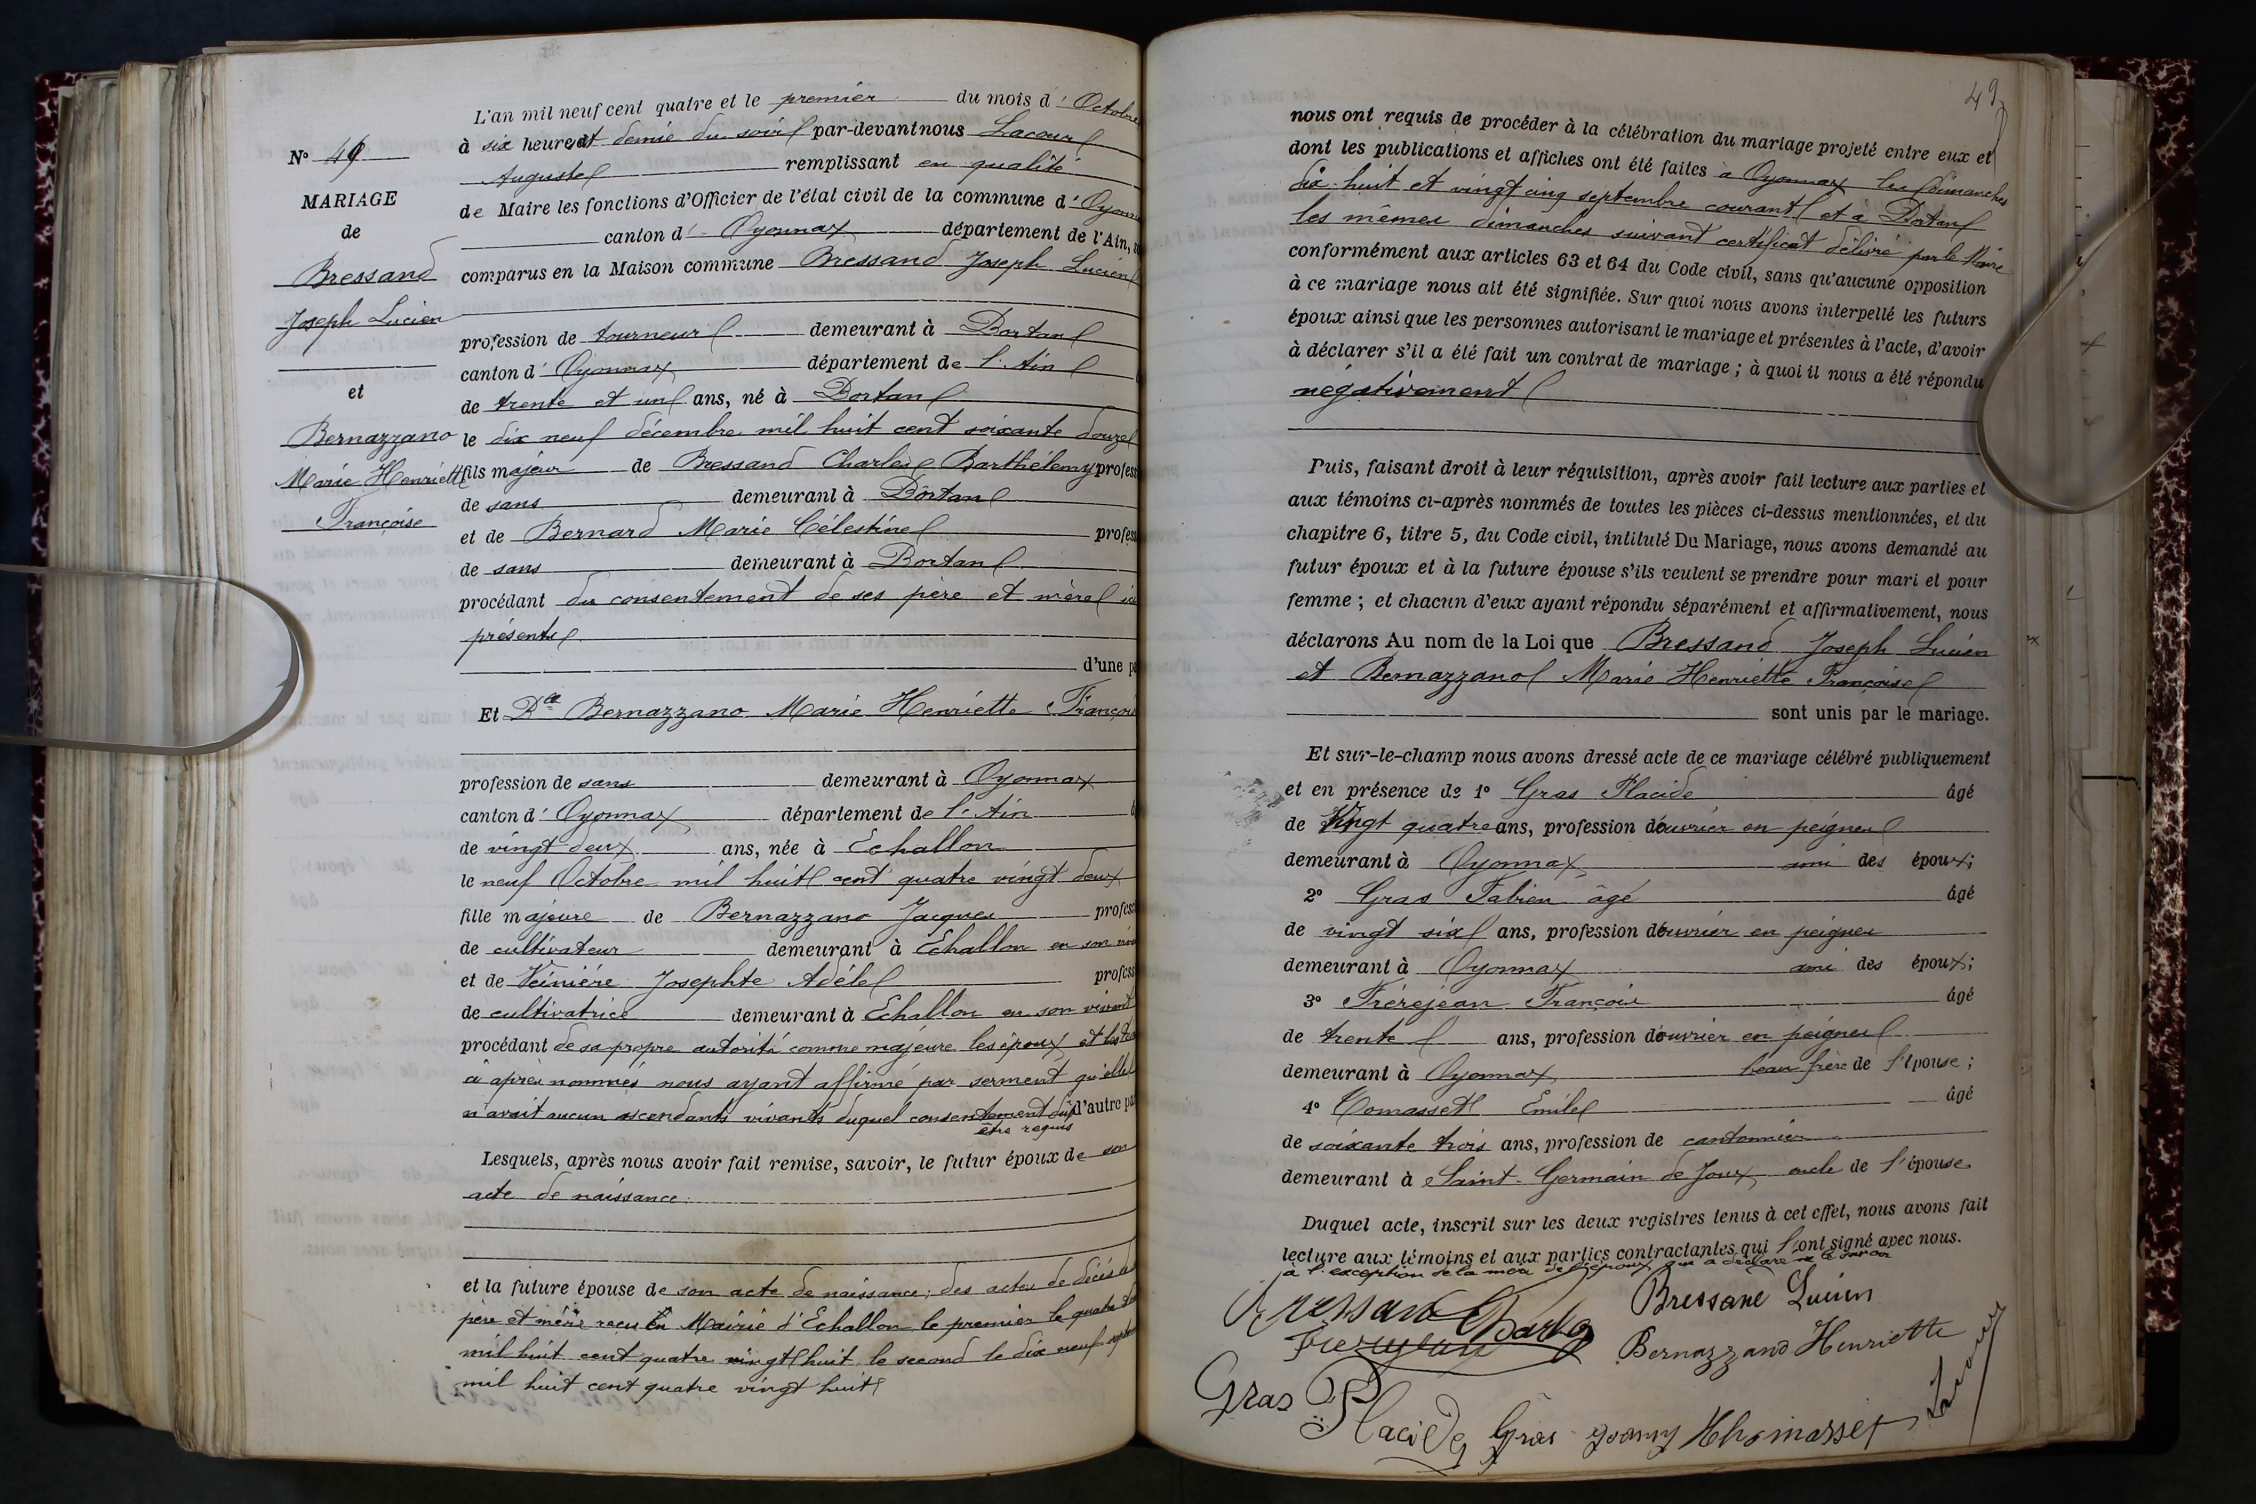 L'an mil neuf cent quatre et le premier du mois d' Octobre
à six heures et demie du soir par-devant nous Lacour
Auguste remplissant en qualité
de Maire les fonctions d'Officier de l'état civil de la commune d' Oyonna
canton d' Oyonnax département de l'Ain,
comparus en la Maison commune Bressand Joseph Lucien
profession de tourneur demeurant à Dortan
canton d' Oyonnax département de l'Ain
de trente et un ans, né à Dortan
le dix neuf décembre mil huit cent soixante douze
fils majeur de Bressand Charles Barthélemy profess
de sans demeurant à Dortan
et de Bernard Marie Célestine profess
de sans demeurant à Dortan
procédant du consentement de ses père et mère ici
présents
d'une pa
N° 49
MARIAGE
de
Bressand
Joseph Lucien
et
Bernazzano
Marie Henriette
Françoise
Et Dlle Bernazzano Marie Henriette Françoi
profession de sans demeurant à Oyonnax
canton d' Oyonnax département de l'Ain
de vingt deux ans, née à Echallon
le neuf Octobre mil huit cent quatre vingt deux
fille majeure de Bernazzano Jacques profess
de cultivateur demeurant à Echallon en son viva
et de Véinière Josephte Adèle profess
de cultivatrice demeurant à Echallon en son vivant
procédant de sa propre autorité comme majeure les époux et les
ci après nommés nous ayant affirmé par serment qu'elle
n'avait aucun ascendants vivants duquel consentement dût d'autre pa
être requis
Lesquels, après nous avoir fait remise, savoir, le futur époux de son
acte de naissance
et la future épouse de son acte de naissance; des actes de décès de
père et mère reçus en Mairie d'Echallon le premier le quatre
mil huit cent quatre vingt huit le second le dix neuf septem
mil huit cent quatre vingt huit
49
nous ont requis de procéder à la célébration du mariage projeté entre eux et
dont les publications et affiches ont été faites à Oyonnax les Dimanches
dix-huit et vingt cinq septembre courant et à Dortan
les mêmes dimanches suivant certificat délivré par le Maire
conformément aux articles 63 et 64 du Code civil, sans qu'aucune opposition
à ce mariage nous ait été signifiée. Sur quoi nous avons interpellé les futurs
époux ainsi que les personnes autorisant le mariage et présentes à l'acte, d'avoir
à déclarer s'il a été fait un contrat de mariage ; à quoi il nous a été répondu
négativement
Puis, faisant droit à leur réquisition, après avoir fait lecture aux parties et
aux témoins ci-après nommés de toutes les pièces ci-dessus mentionnées, et du
chapitre 6, titre 5, du Code civil, intitulé Du Mariage, nous avons demandé au
futur époux et à la future épouse s'ils veulent se prendre pour mari et pour
femme ; et chacun d'eux ayant répondu séparément et affirmativement, nous
déclarons Au nom de la Loi que Bressand Joseph Lucien
et Bernazzano Marie Henriette Françoise
sont unis par le mariage.
Et sur-le-champ nous avons dressé acte de ce mariage célébré publiquement
et en présence de 1° Gras Placide âgé
de Vingt quatre ans, profession d'ouvrier en peignes
demeurant à Oyonnax ami des époux;
2° Gras Fabien âgé âgé
de vingt six ans, profession d'ouvrier en peignes
demeurant à Oyonnax ami des époux;
3° Frèrejean François âgé
de trente ans, profession d'ouvrier en peignes
demeurant à Oyonnax beau frère de l'épouse ;
4° Comasset Emile âgé
de soixante trois ans, profession de cantonnier
demeurant à Saint-Germain de Joux oncle de l'épouse
Duquel acte, inscrit sur les deux registres tenus à cet effet, nous avons fait
lecture aux témoins et aux parties contractantes qui l'ont signé avec nous.
à l'exception de la mère de l'époux qui a déclaré ne le savoir
Bressand Charles Bressane Lucien
Frerejean Bernazzano Henriette
Gras Placide Gras Joany Thomasset Lacour